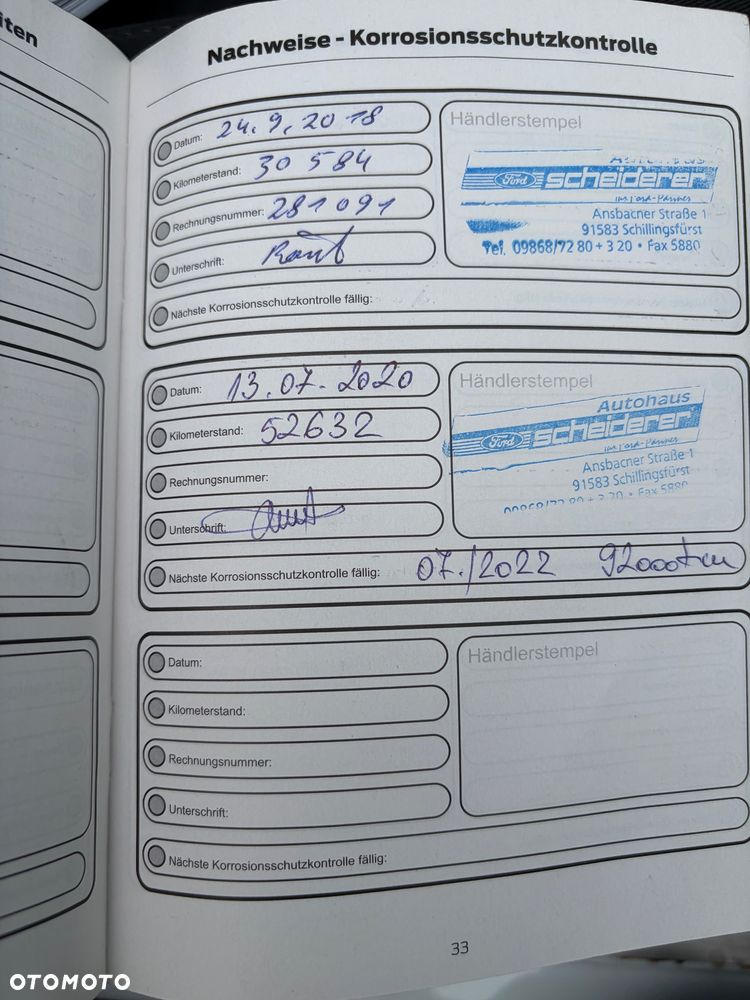 iten
Nachweise - Korrosionsschutzkontrolle
Datum: 24.9.2018
Kilometerstand: 30 584
Rechnungsnummer: 281091
Unterschrift:
Nächste Korrosionsschutzkontrolle fällig:
Händlerstempel
Autohaus
Ford scheiderer
Ihr Ford-Partner
Ansbacner Straße 1
91583 Schillingsfürst
Tel. 09868/72 80 + 3 20 • Fax 5880
Datum: 13.07.2020
Kilometerstand: 52632
Rechnungsnummer:
Unterschrift:
Nächste Korrosionsschutzkontrolle fällig: 07./2022 92000km
Händlerstempel
Autohaus
Ford scheiderer
Ihr Ford-Partner
Ansbacner Straße 1
91583 Schillingsfürst
09868/72 80 + 3 20 • Fax 5880
Datum:
Kilometerstand:
Rechnungsnummer:
Unterschrift:
Nächste Korrosionsschutzkontrolle fällig:
Händlerstempel
33
OTOMOTO